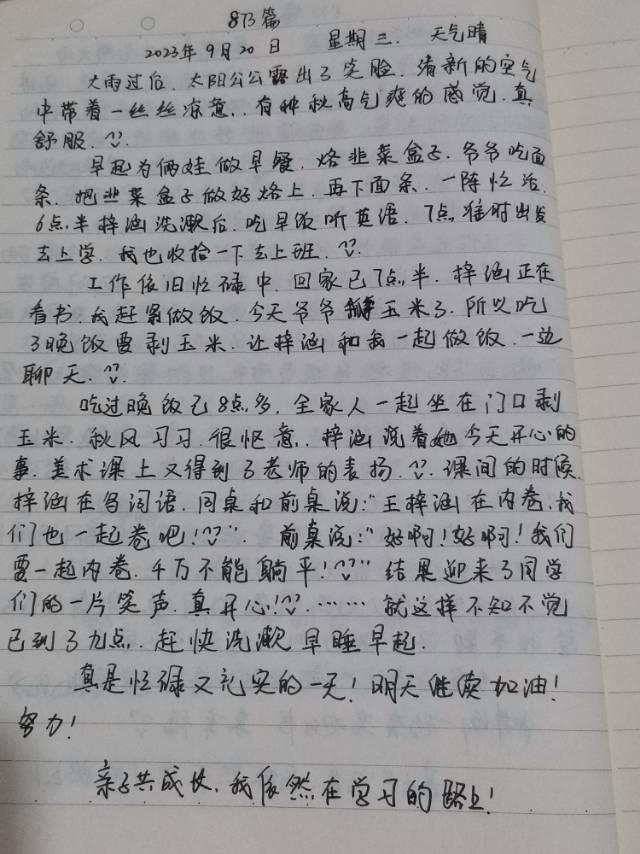 873篇
2023年9月20日 星期三. 天气晴
大雨过后. 太阳公公露出了笑脸. 清新的空气
中带着一丝丝凉意.. 有种秋高气爽的感觉. 真
舒服.
早起为俩娃做早餐. 烙韭菜盒子. 爷爷吃面
条. 把韭菜盒子做好烙上. 再下面条. 一阵忙活.
6点半梓涵洗漱后. 吃早饭听英语. 7点准时出发
去上学. 我也收拾一下去上班.
工作依旧忙碌中. 回家已7点半. 梓涵正在
看书. 我赶紧做饭. 今天爷爷掰玉米了. 所以吃
了晚饭要剥玉米. 让梓涵和我一起做饭. 一边
聊天.
吃过晚饭已8点多. 全家人一起坐在门口剥
玉米. 秋风习习. 很惬意.. 梓涵说着她今天开心的
事. 美术课上又得到了老师的表扬. 课间的时候.
梓涵在写词语. 同桌和前桌说:"王梓涵在内卷. 我
们也一起卷吧!". 前桌说:"好啊!好啊!我们
要一起内卷. 千万不能躺平!" 结果迎来了同学
们的一片笑声. 真开心! …… 就这样不知不觉
已到了九点.. 赶快洗漱早睡早起.
真是忙碌又充实的一天! 明天继续加油!
努力!
亲子共成长. 我依然在学习的路上!